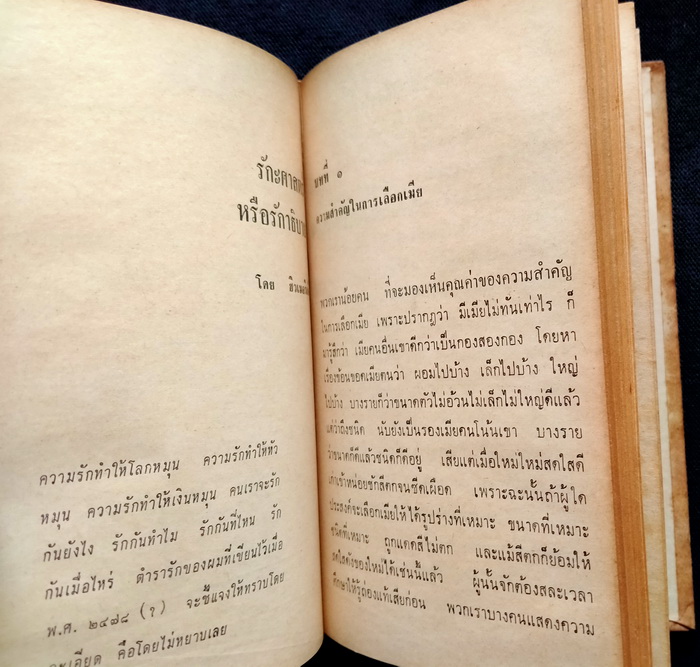 รักะศาส
หรือรักาธิบา
โดย
ความรักทำให้โลกหมุน ความรักทำให้หัว
หมุน ความรักทำให้เงินหมุน คนเราจะรัก
กันยังไง รักกันทำไม รักกันที่ไหน รัก
กันเมื่อไหร่ ตำรารักของผมที่เขียนไว้เมื่อ
พ.ศ. ๒๔๗๘ (?) จะชี้แจงให้ทราบโดย
ละเอียด คือโดยไม่หยาบเลย
บทที่ ๑
ความสำคัญในการเลือกเมีย
พวกเราน้อยคน ที่จะมองเห็นคุณค่าของความสำคัญ
ในการเลือกเมีย เพราะปรากฏว่า มีเมียไม่ทันเท่าไร ก็
มารู้สึกว่า เมียคนอื่นเขาดีกว่าเป็นกองสองกอง โดยหา
เรื่องข้อนขอดเมียตนว่า ผอมไปบ้าง เล็กไปบ้าง ใหญ่
ไปบ้าง บางรายก็ว่าขนาดตัวไม่อ้วนไม่เล็กไม่ใหญ่ดีแล้ว
แต่ว่าถึงชนิด นับยังเป็นรองเมียคนโน้นเขา บางราย
ว่าขนาดก็ดีแล้วชนิดก็ดีอยู่ เสียแต่เมื่อใหม่ใหม่สดใสดี
เก่าเข้าหน่อยชักสีตกจนซีดเผือด เพราะฉะนั้นถ้าผู้ใด
ประสงค์จะเลือกเมียให้ได้รูปร่างที่เหมาะ ขนาดที่เหมาะ
ชนิดที่เหมาะ ถูกแดดสีไม่ตก และแม้สีตกก็ย้อมให้
สดใสดังของใหม่ได้เช่นนี้แล้ว ผู้นั้นจักต้องสละเวลา
ศึกษาให้รู้ถ่องแท้เสียก่อน พวกเราบางคนแสดงความ